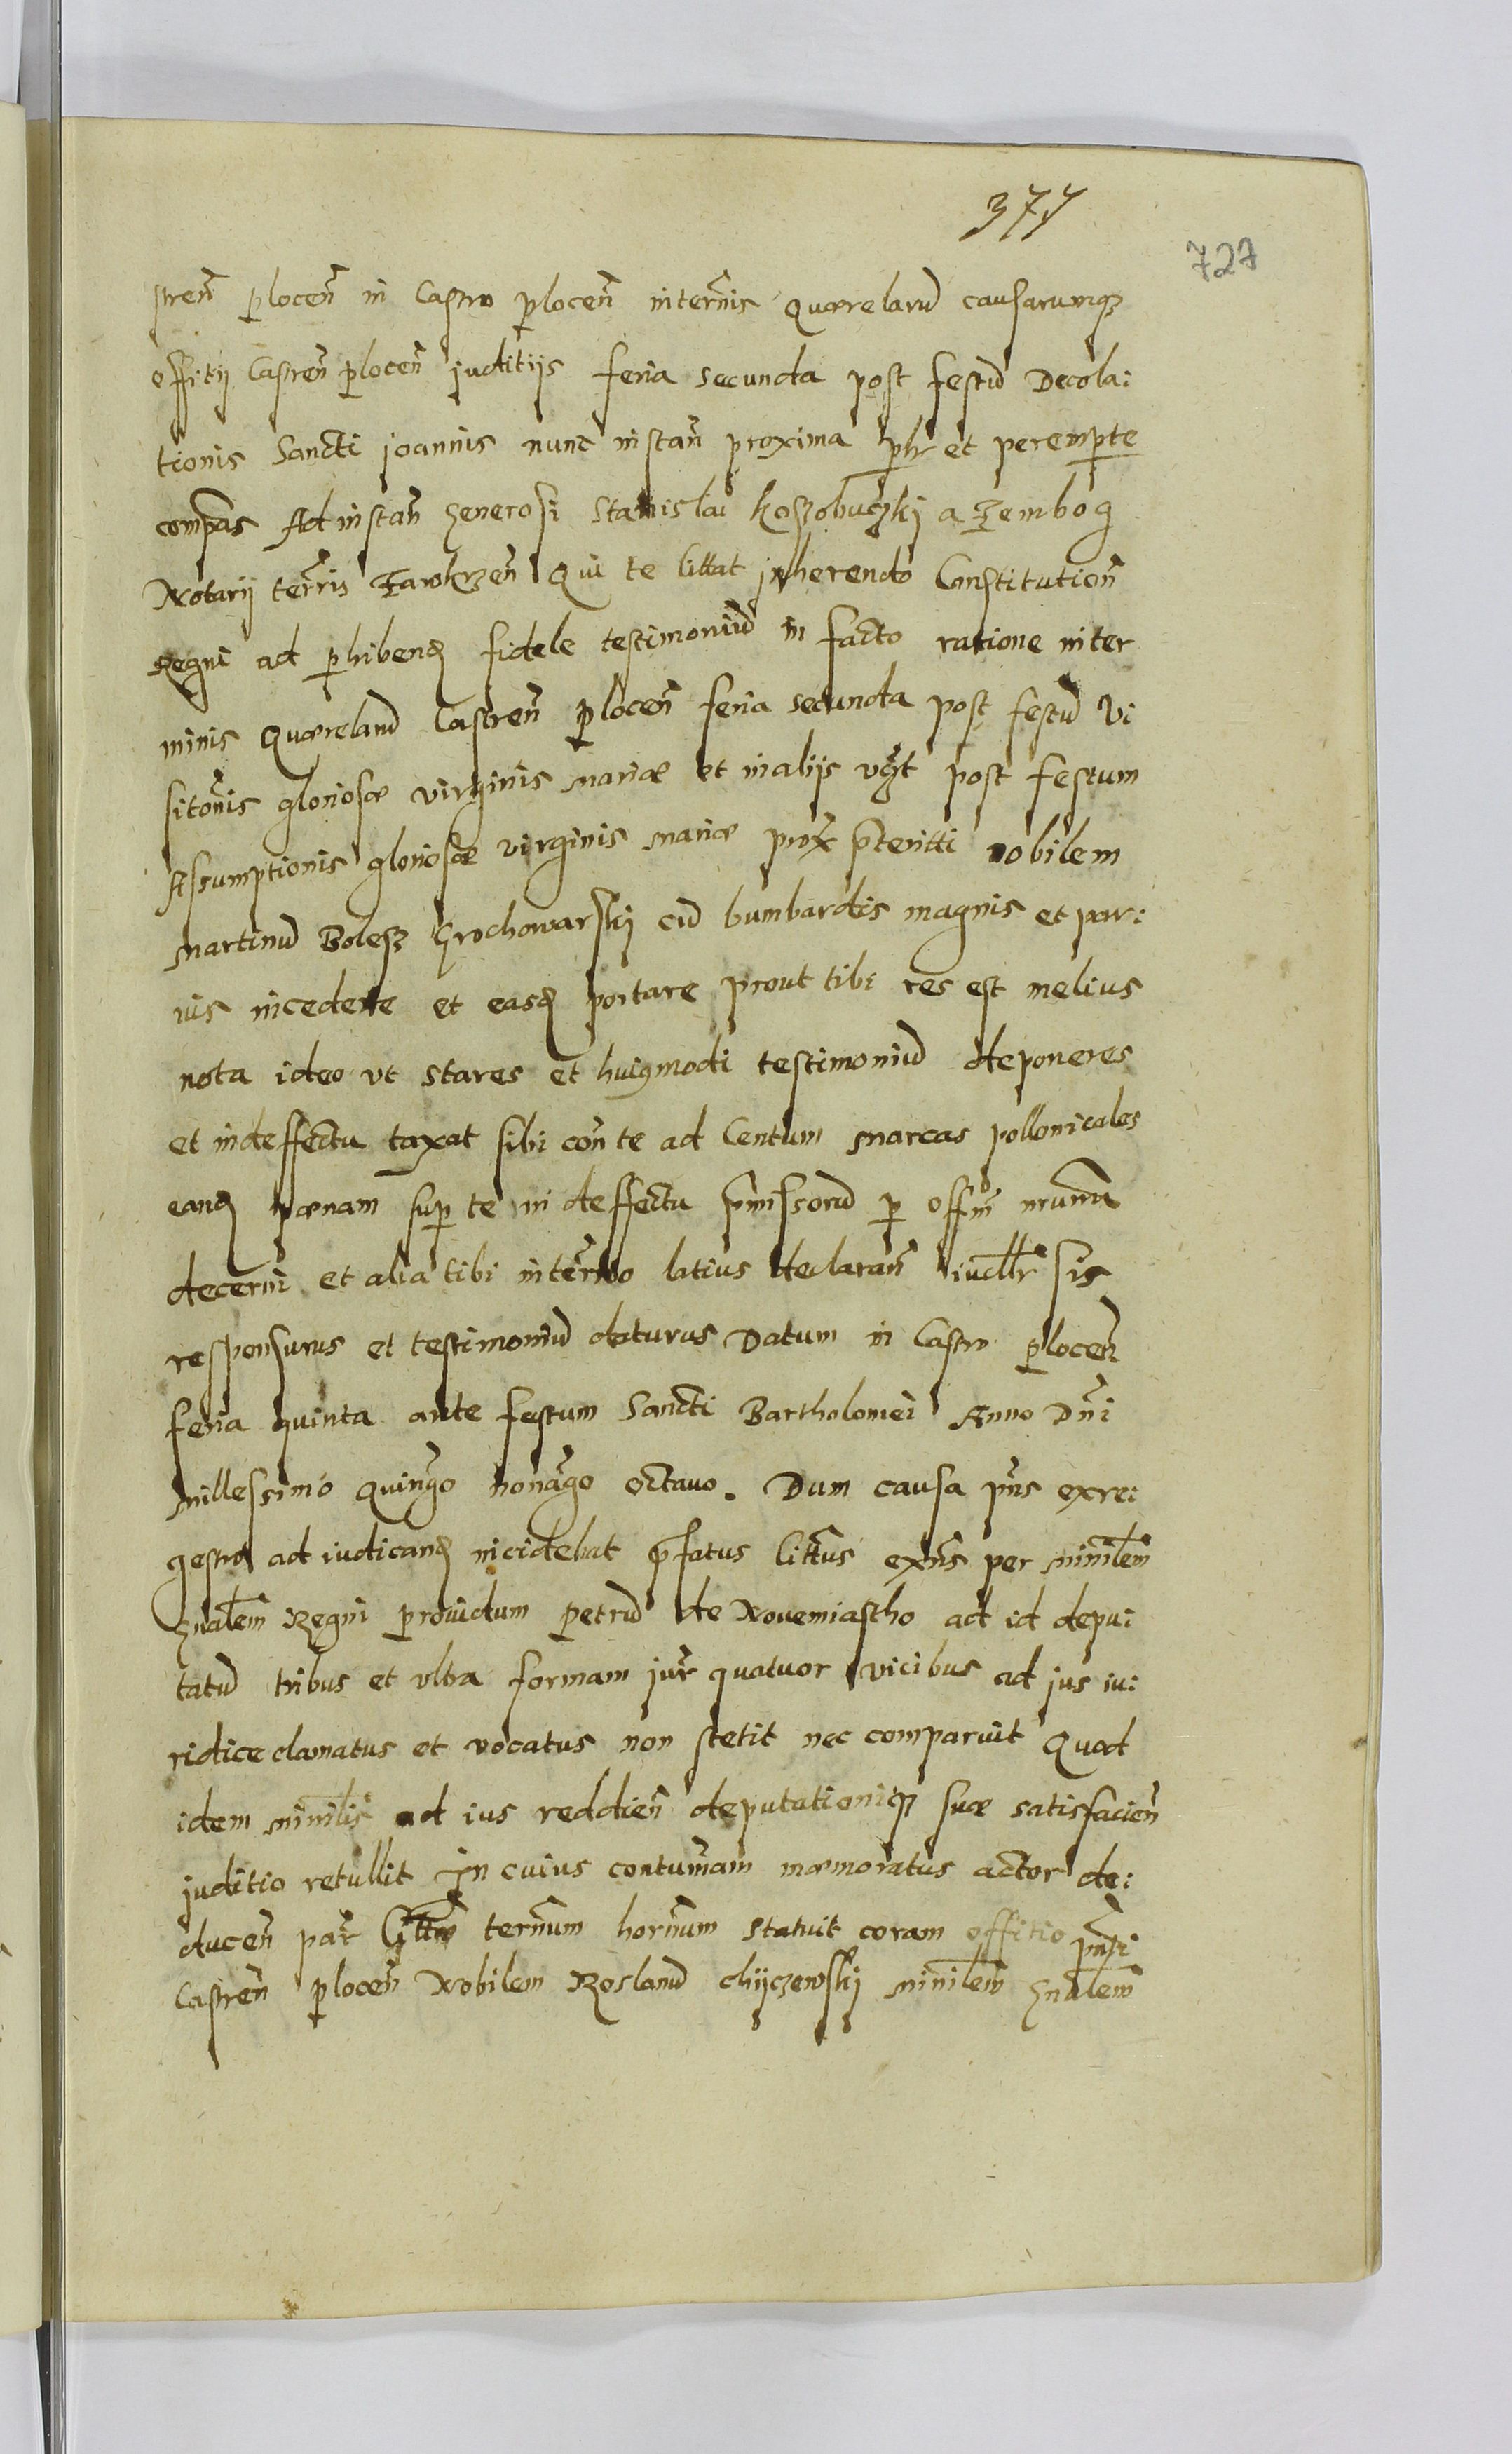 377
727
streñ plocen̄ in Castro plocen̄ intermīs Quærelarū causarumqꝫ
offitij Castren̄ plocen̄ juditijs feria secunda post festū Decola:
tionis Sancti joannis nunc instan̄ proxima pnr̄ et perempte
compās Ad instan̄ Generosi Stanislai Koszobuczkj a Zembog
Notarij terrīs Zawkrzen̄ Qui te littat jnherendo Constitution̄
Regni ad perhibenḍ fidele testimoniū in facto ratione inter
minis Quærelarū Castren̄ plocen̄ feria secunda post festū Vi
sitōnis gloriosæ virginis Mariæ et in alijs vḡt post festum
Assumptionis gloriosæ virginis Mariæ prox̄ p̄teritti nobilem
Martinū Bolesz Grochowarskj cū bumbardis magnis et par:
uis incedere et easḍ portare prout tibi res est melius
nota ideo vt stares et huiꝰmodi testimoniū deponeres
et in deffectu taxat sibi con̄ te ad Centum Marcas pollonicales
eanḍ pænam sup te in deffectu p̄missorū p offm̄
decerni et alia tibi in term̄o latius declaran̄ iudllr̄ sis
responsurus et testimoniū daturus Datum in Castro plocen̄
feria quinta ante festum Sancti Bartholomei Anno Dn̄i
Millessimo Quingo nonāgo octauo. Dum causa pn̄s ex re:
gestro ad iudicanḍ incidebat p̄fatus littus exn̄s per Ministlem̄
Gnalem̄ Regni prouidum petrū de Nouemiastho ad id depu:
tatū tribus et vltra formam jur̄ quatuor vicibus ad jus iu:
ridice clamatus et vocatus non stetit nec comparuit Quod
idem Ministlis̄ ad ius reddien̄ deputationiqꝫ suæ satisfacien̄
juditio retullit In cuius contum̄am mæmoratus actor de:
ducen̄ par̄ term̄um horn̄um statuit coram offitio pn̄ti
Castren̄ plocen̄ Nobilem Roslanū Chijczewskj Ministlem̄ Gnalem̄